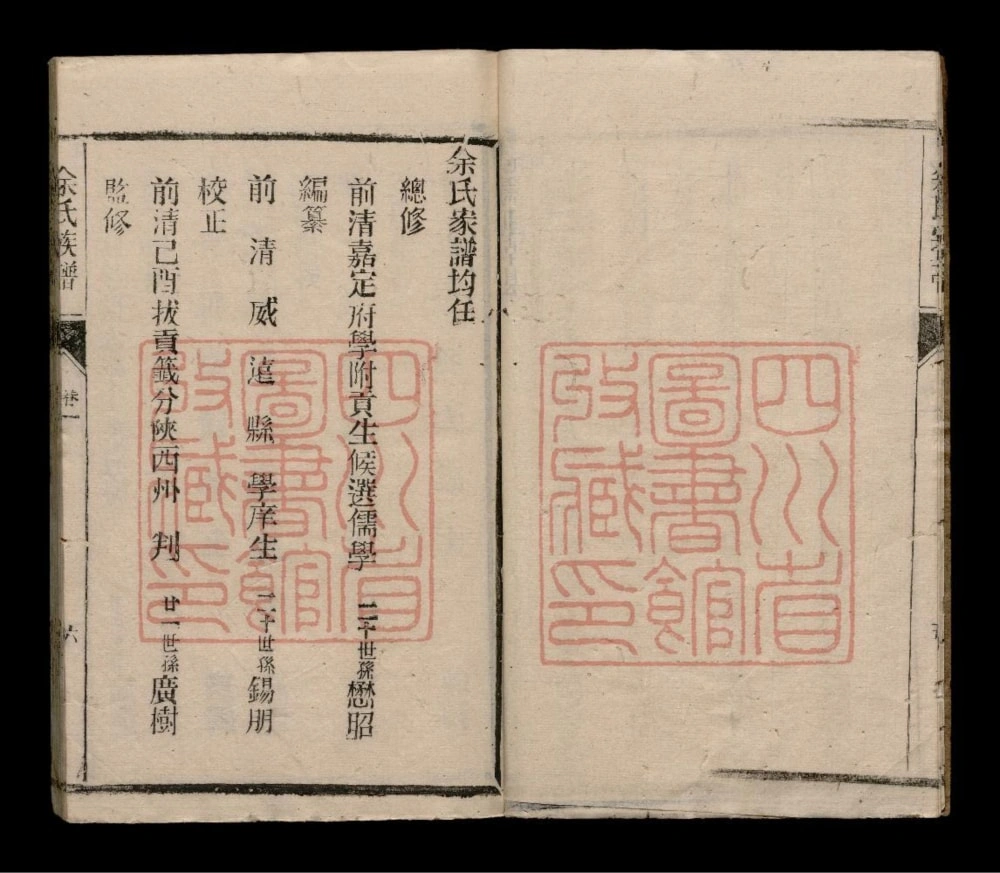 余氏家譜均任
總修
前清嘉定府學附貢生候選儒學 二十世孫懋昭
編纂
前清威遠縣學庠生 二十世孫錫朋
校正
前清己酉拔貢籤分陝西州判 廿一世孫廣樹
監修
余氏族譜
卷一
六
四川省
圖書館
收藏印
四川省
圖書館
收藏印